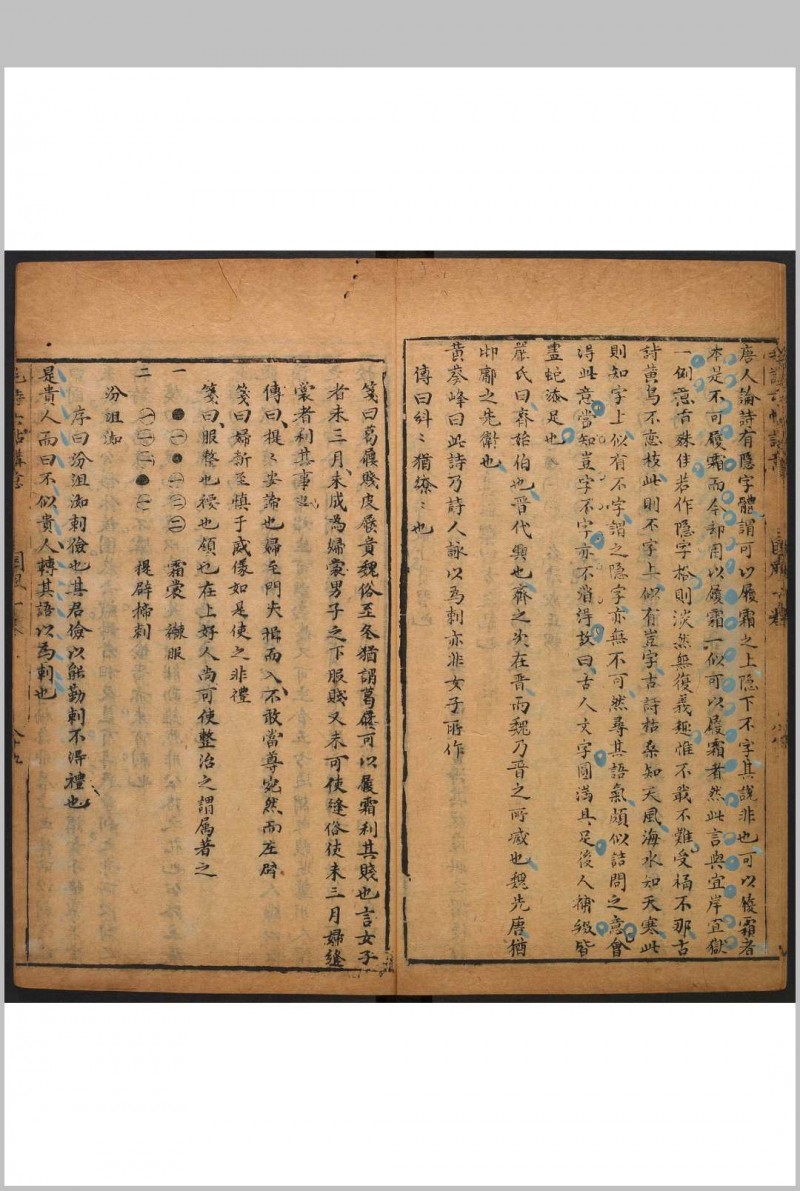 唐人論詩有隱字體謂可以履霜之上隱下不字其說非也可以履霜者
本是不可履霜而今却用以履霜一似可以履霜者然此言與宜岸宜獄
一例意旨殊佳若作隱字格則淡然無復義趣惟不戢不難受福不那古
詩黃鳥不戀枝此則不字上似有豈字古詩枯桑知天風海水知天寒此
則知字上似有不字謂之隱字亦無不可然尋其語氣頗似詰問之意會
得此意當知豈字不字亦不消得故曰古人文字圓滿具足後人補綴皆
畫蛇添足也
蘇氏曰齊始伯也晉代興也齊之次在晉而魏乃晉之所滅也魏先唐猶
邶鄘之先衛也
黃葵峰曰此詩乃詩人詠以為刺亦非女子所作
傳曰糾〻猶繚〻也
箋曰葛屨賤皮屨貴魏俗至冬猶謂葛屨可以履霜利其賤也言女子
者未三月未成為婦裳男子之下服賤又未可使縫俗使未三月婦縫
裳者利其事也
傳曰提〻安諦也婦至門夫揖而入不敢當尊宛然而左辟
箋曰婦新至慎于威儀如是使之非禮
箋曰服整也褑也領也在上好人尚可使整治之謂属著之
一 ●㊀●㊀㊁㊁ 霜裳 襋服
二 ㊀㊀㊁●㊁㊀ 提辟揥刺
汾沮洳
序曰汾沮洳刺儉也其君儉以能勤刺不得禮也
是貴人而曰不似貴人轉其語以為刺也